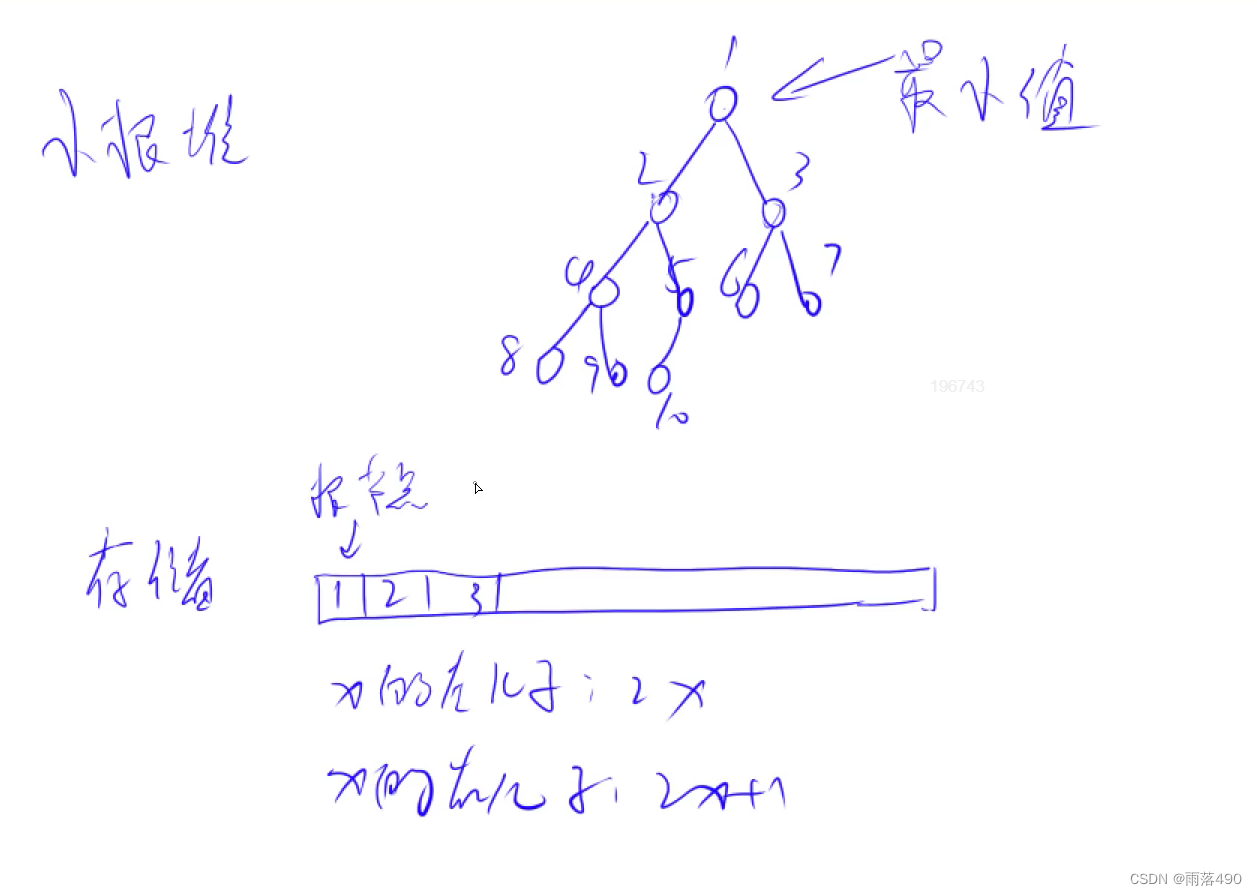 小根堆
最小值
1
2
3
4
5
6
7
8
9
10
根节点
存储
1 2 3
x的左儿子: 2x
x的右儿子: 2x+1
196743
CSDN @雨落490